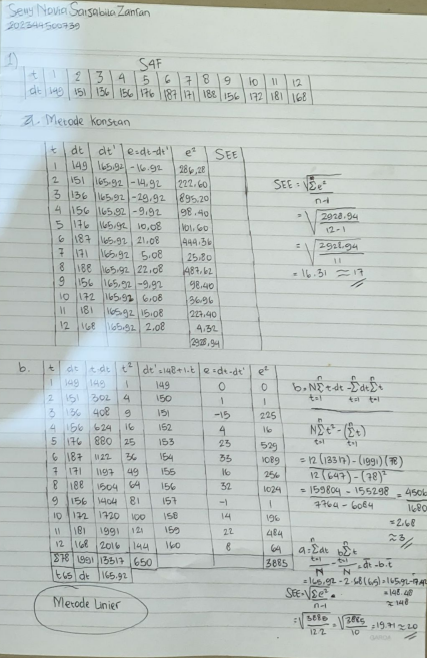 Seny Novia Salsabila Zanfan
202344500739
1) S4F
t 1 2 3 4 5 6 7 8 9 10 11 12
dt 149 151 136 156 176 187 171 188 156 172 181 168
a. Metode konstan
t dt dt' e=dt-dt' e² SEE
1 149 165,92 -16,92 286,28
2 151 165,92 -14,92 222,60
3 136 165,92 -29,92 895,20
4 156 165,92 -9,92 98,40
5 176 165,92 10,08 101,60
6 187 165,92 21,08 444,36
7 171 165,92 5,08 25,80
8 188 165,92 22,08 487,62
9 156 165,92 -9,92 98,40
10 172 165,92 6,08 36,96
11 181 165,92 15,08 227,40
12 168 165,92 2,08 4,32
2928,94
SEE = √Σe²
n-1
= √2928,94
12-1
= √2928,94
11
= 16,31 ≈ 17
b. t dt t.dt t² dt'=148+1.t e=dt-dt' e²
1 149 149 1 149 0 0
2 151 302 4 150 1 1
3 136 408 9 151 -15 225
4 156 624 16 152 4 16
5 176 880 25 153 23 529
6 187 1122 36 154 33 1089
7 171 1197 49 155 16 256
8 188 1504 64 156 32 1024
9 156 1404 81 157 -1 1
10 172 1720 100 158 14 196
11 181 1991 121 159 22 484
12 168 2016 144 160 8 64
Σ78 1991 13317 650 3885
t 6,5 dt 165,92
Metode Linier
b = NΣt.dt - ΣdtΣt
t=1 t=1 t=1
NΣt² - (Σt)
t=1 t=1
= 12(13317) - (1991)(78)
12(647) - (78)²
= 159804 - 155298 = 4506
7764 - 6084 1680
= 2,68
≈ 3
a = Σdt - bΣt = dt - b.t
N N
= 165,92 - 2,68(6,5) = 165,92 -
= 148,48
≈ 148
SEE = √Σe²
n-1
= √3885 = √3885 = 19,71 ≈ 20
12-2 10